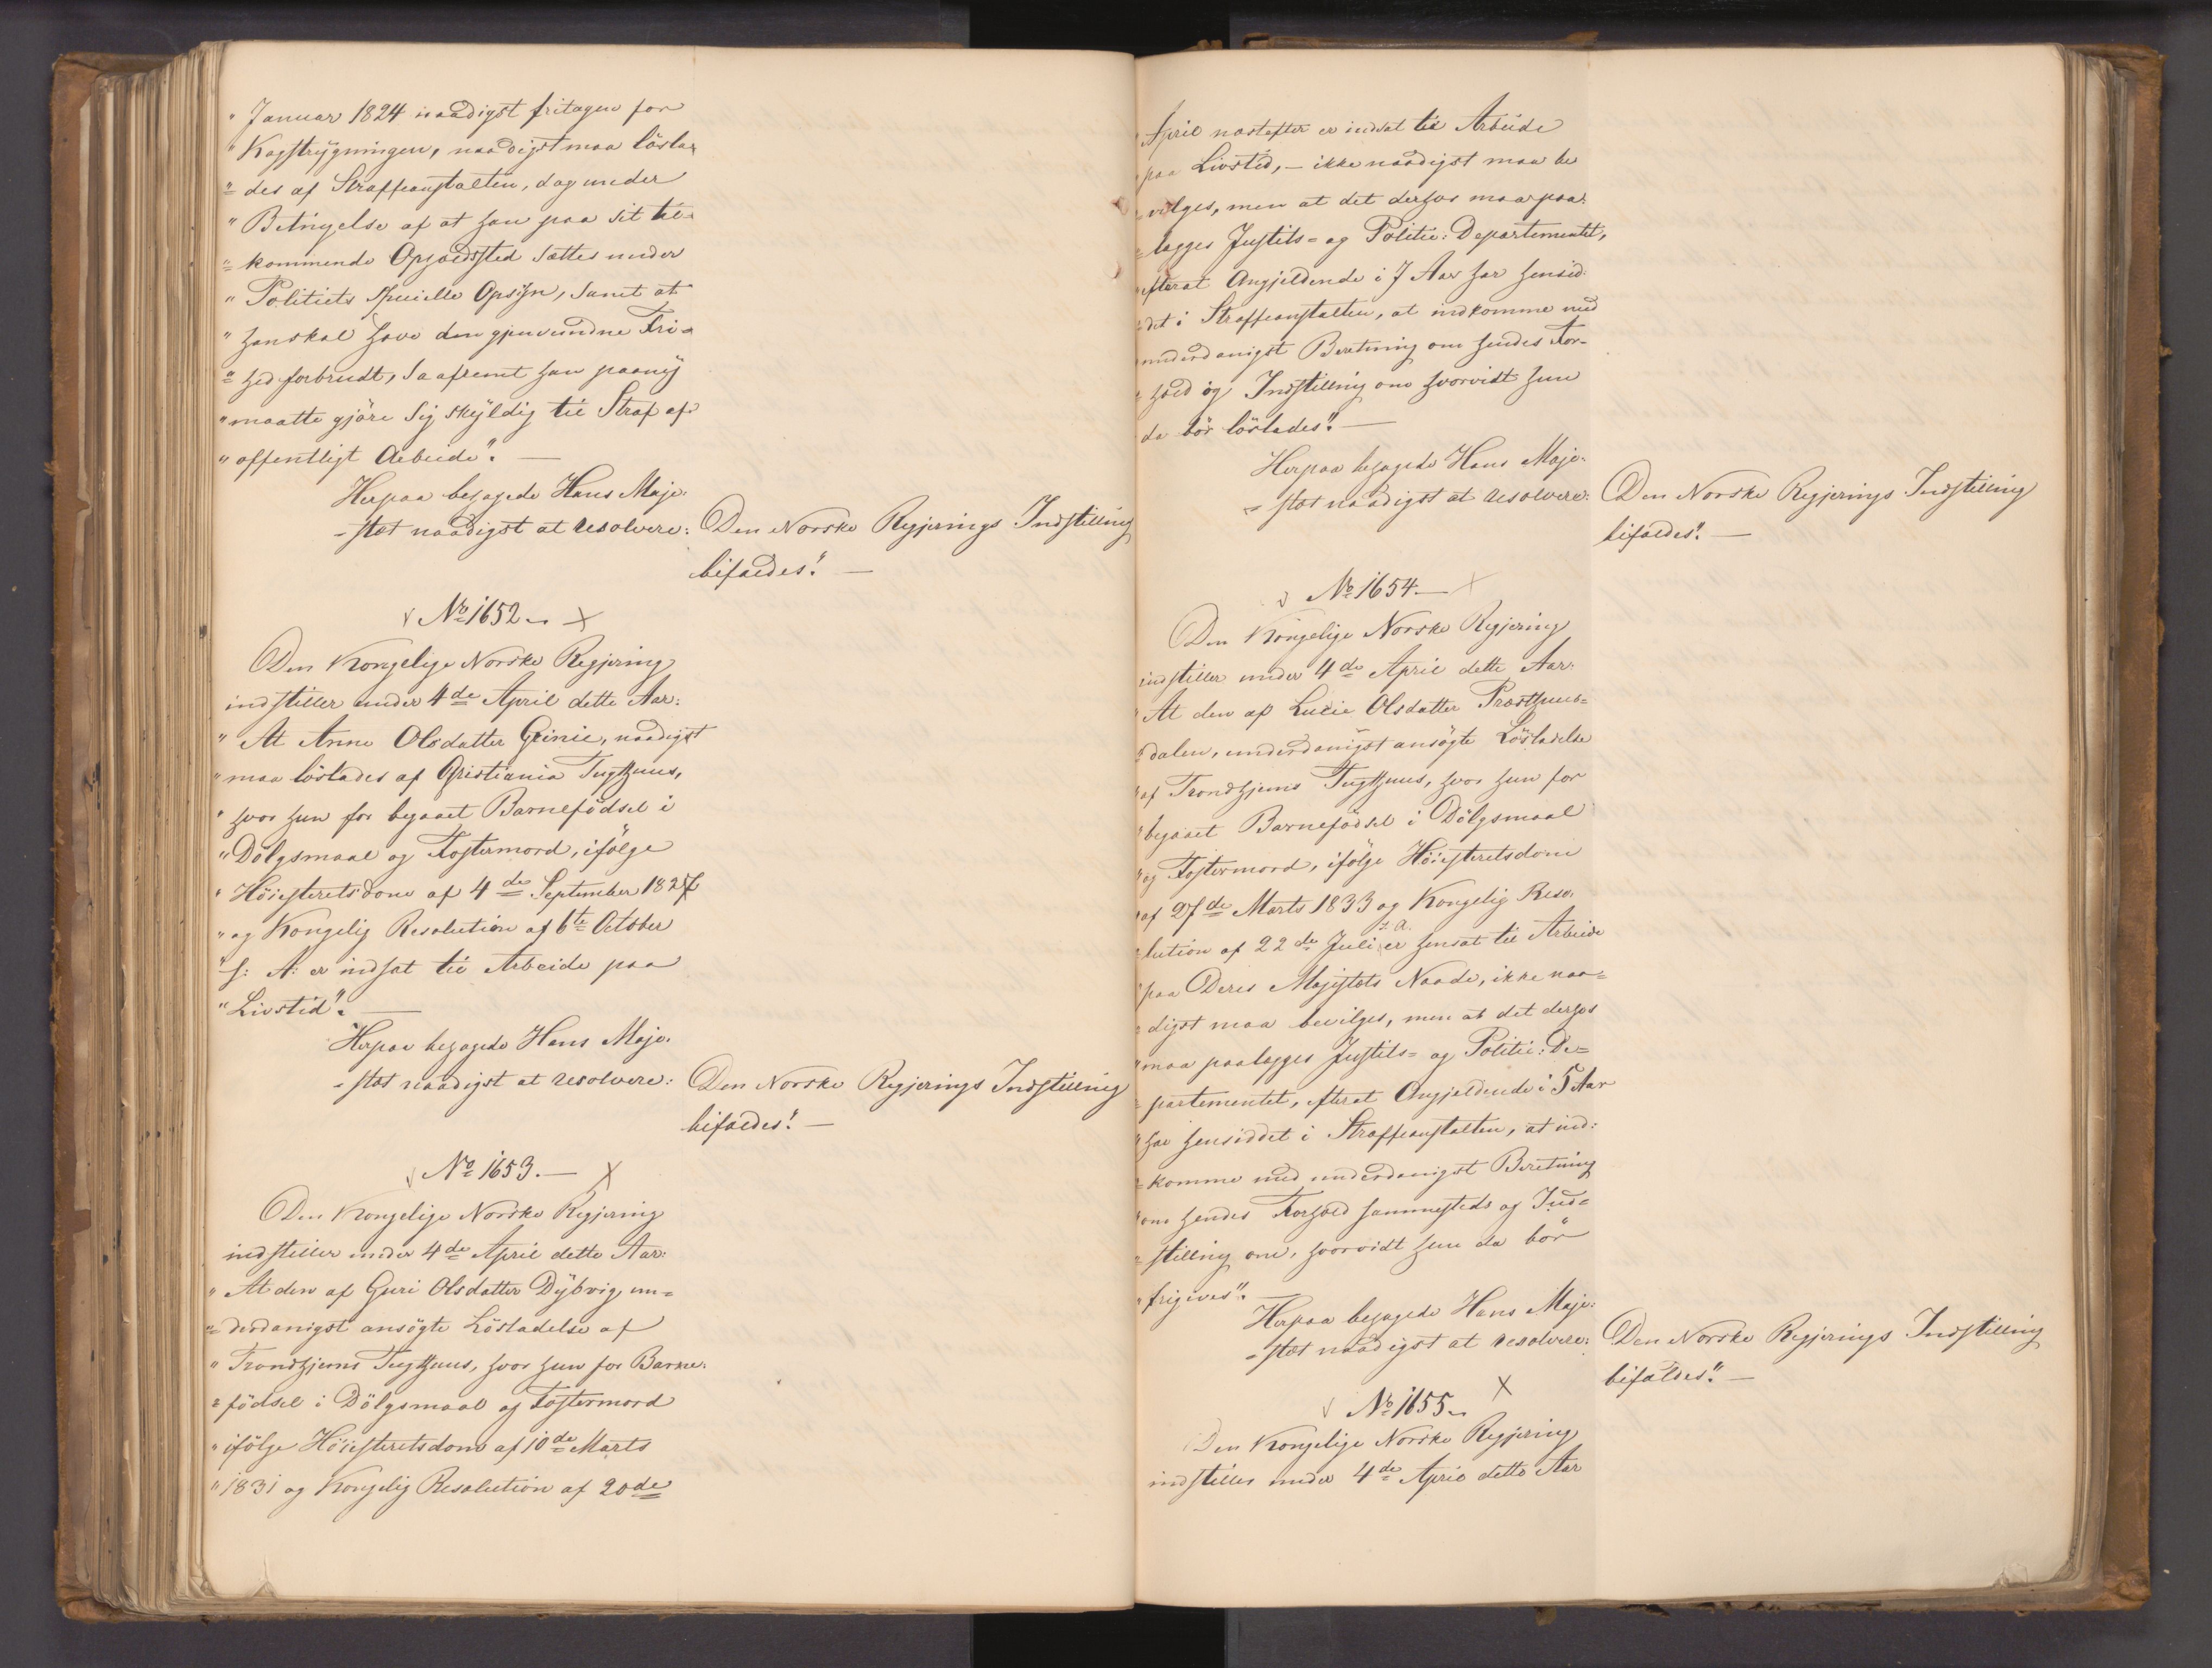 " Januar 1824 naadigst fritagen for
" Kagstrygningen, naadigst maa lösla-
"= des af Straffeanstalten, dog under
" Betingelse af at han paa sit til-
"= kommende Opholdssted sættes under
" Politiets specielle Opsyn, samt at
" han skal have den gjenvundne Fri-
"= hed forbrudt, saafremt han paany
" maatte gjöre sig skyldig til Straf af
" offentligt Arbeide". —
Herpaa behagede Hans Maje-
- stæt naadigst at resolvere: Den Norske Regjerings Indstilling
bifaldes". —
No 1652 — X
Den Kongelige Norske Regjering
indstiller under 4de April dette Aar:
" At Anne Olsdatter Grinie, naadigst
" maa löslades af Christiania Tugthuus,
" hvor hun for begaaet Barnefödsel i
" Dölgsmaal og Fostermord, ifölge
" Höiesteretsdom af 4de September 1827
" og Kongelig Resolution af 6te October
" s: A: er indsat til Arbeide paa
" Livstid". —
Herpaa behagede Hans Maje-
- stæt naadigst at resolvere: Den Norske Regjerings Indstilling
bifaldes". —
No 1653. — X
Den Kongelige Norske Regjering
indstiller under 4de April dette Aar:
" At den af Guri Olsdatter Dybvig un-
"= derdanigst ansögte Lösladelse af
" Trondhjems Tugthuus, hvor hun for Barne-
"= födsel i Dölgsmaal og Fostermord
" ifölge Höiesteretsdom af 10de Marts
" 1831 og Kongelig Resolution af 20de
" April næstefter er indsat til Arbeide
" paa Livstid, — ikke naadigst maa be
"= vilges, men at det derhos maa paa-
"= lægges Justits- og Politie-Departementet,
" efterat Angjeldende i 7 Aar har hensid-
"= det i Straffeanstalten, at indkomme med
" underdanigst Beretning om hendes For-
"= hold og Indstilling om hvorvidt hun
da bör löslades". —
Herpaa behagede Hans Maje-
= stæt naadigst at resolvere: Den Norske Regjerings Indstilling
bifaldes". —
No 1654. — X
Den Kongelige Norske Regjering
indstiller under 4de April dette Aar:
" At den af Lucie Olsdatter Præsthuus-
"= dalen, underdanigst ansögte Lösladelse
" af Trondhjems Tugthuus, hvor hun for
" begaaet Barnefödsel i Dölgsmaal
" og Fostermord, ifölge Höiesteretsdom
" af 27de Marts 1833 og Kongelig Reso-
"= lution af 22de Juli s. A. er hensat til Arbeide
" paa Deres Majestæts Naade, ikke naa-
"= digst maa bevilges, men at det derhos
" maa paalægges Justits- og Politie-De-
"= partementet, efterat Angjeldende i 5 Aar
" har hensiddet i Straffeanstalten, at ind-
"= komme med underdanigst Beretning
" om hendes Forhold sammesteds og Ind-
"= stilling om, hvorvidt hun da bör
" frigives". —
Herpaa behagede Hans Maje-
= stæt naadigst at resolvere: Den Norske Regjerings Indstilling
bifaldes". —
No 1655 — X
Den Kongelige Norske Regjering
indstiller under 4de April dette Aar